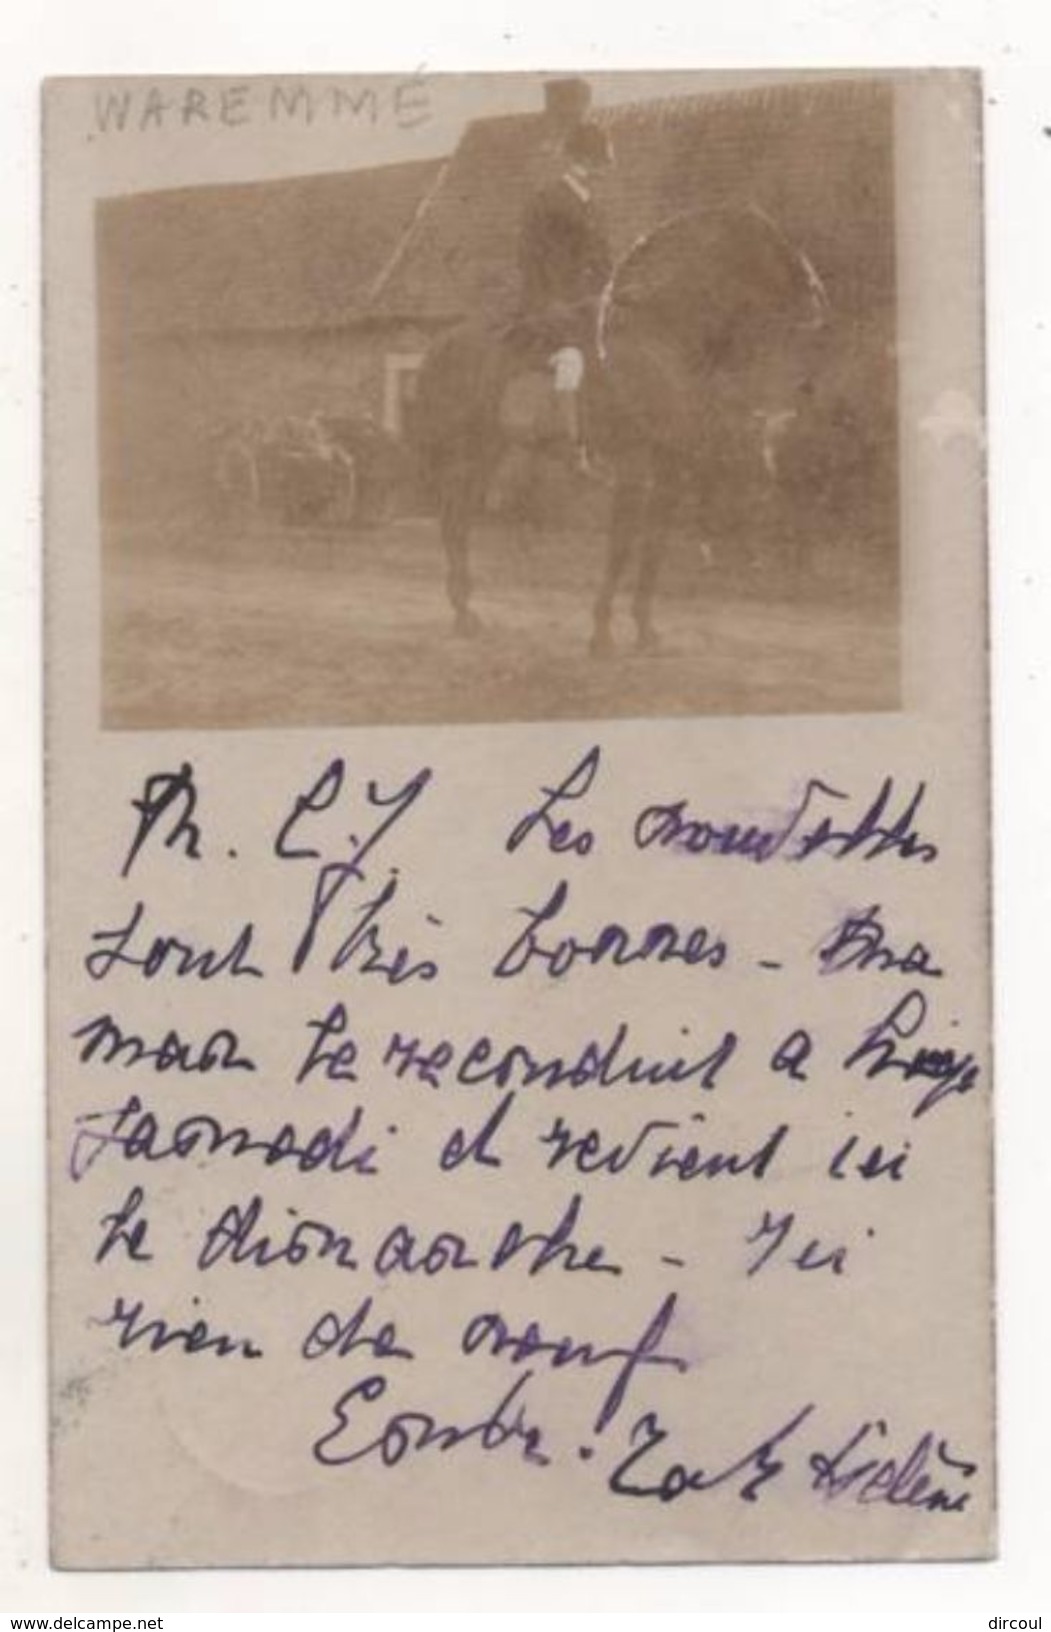 WAREMME
Th. C. J. Les nouvelles
sont très bonnes - ma
man le reconduit a Liège
samedi et revient ici
le dimanche - Ici
rien de neuf
Hélène
www.delcampe.net
dircoul